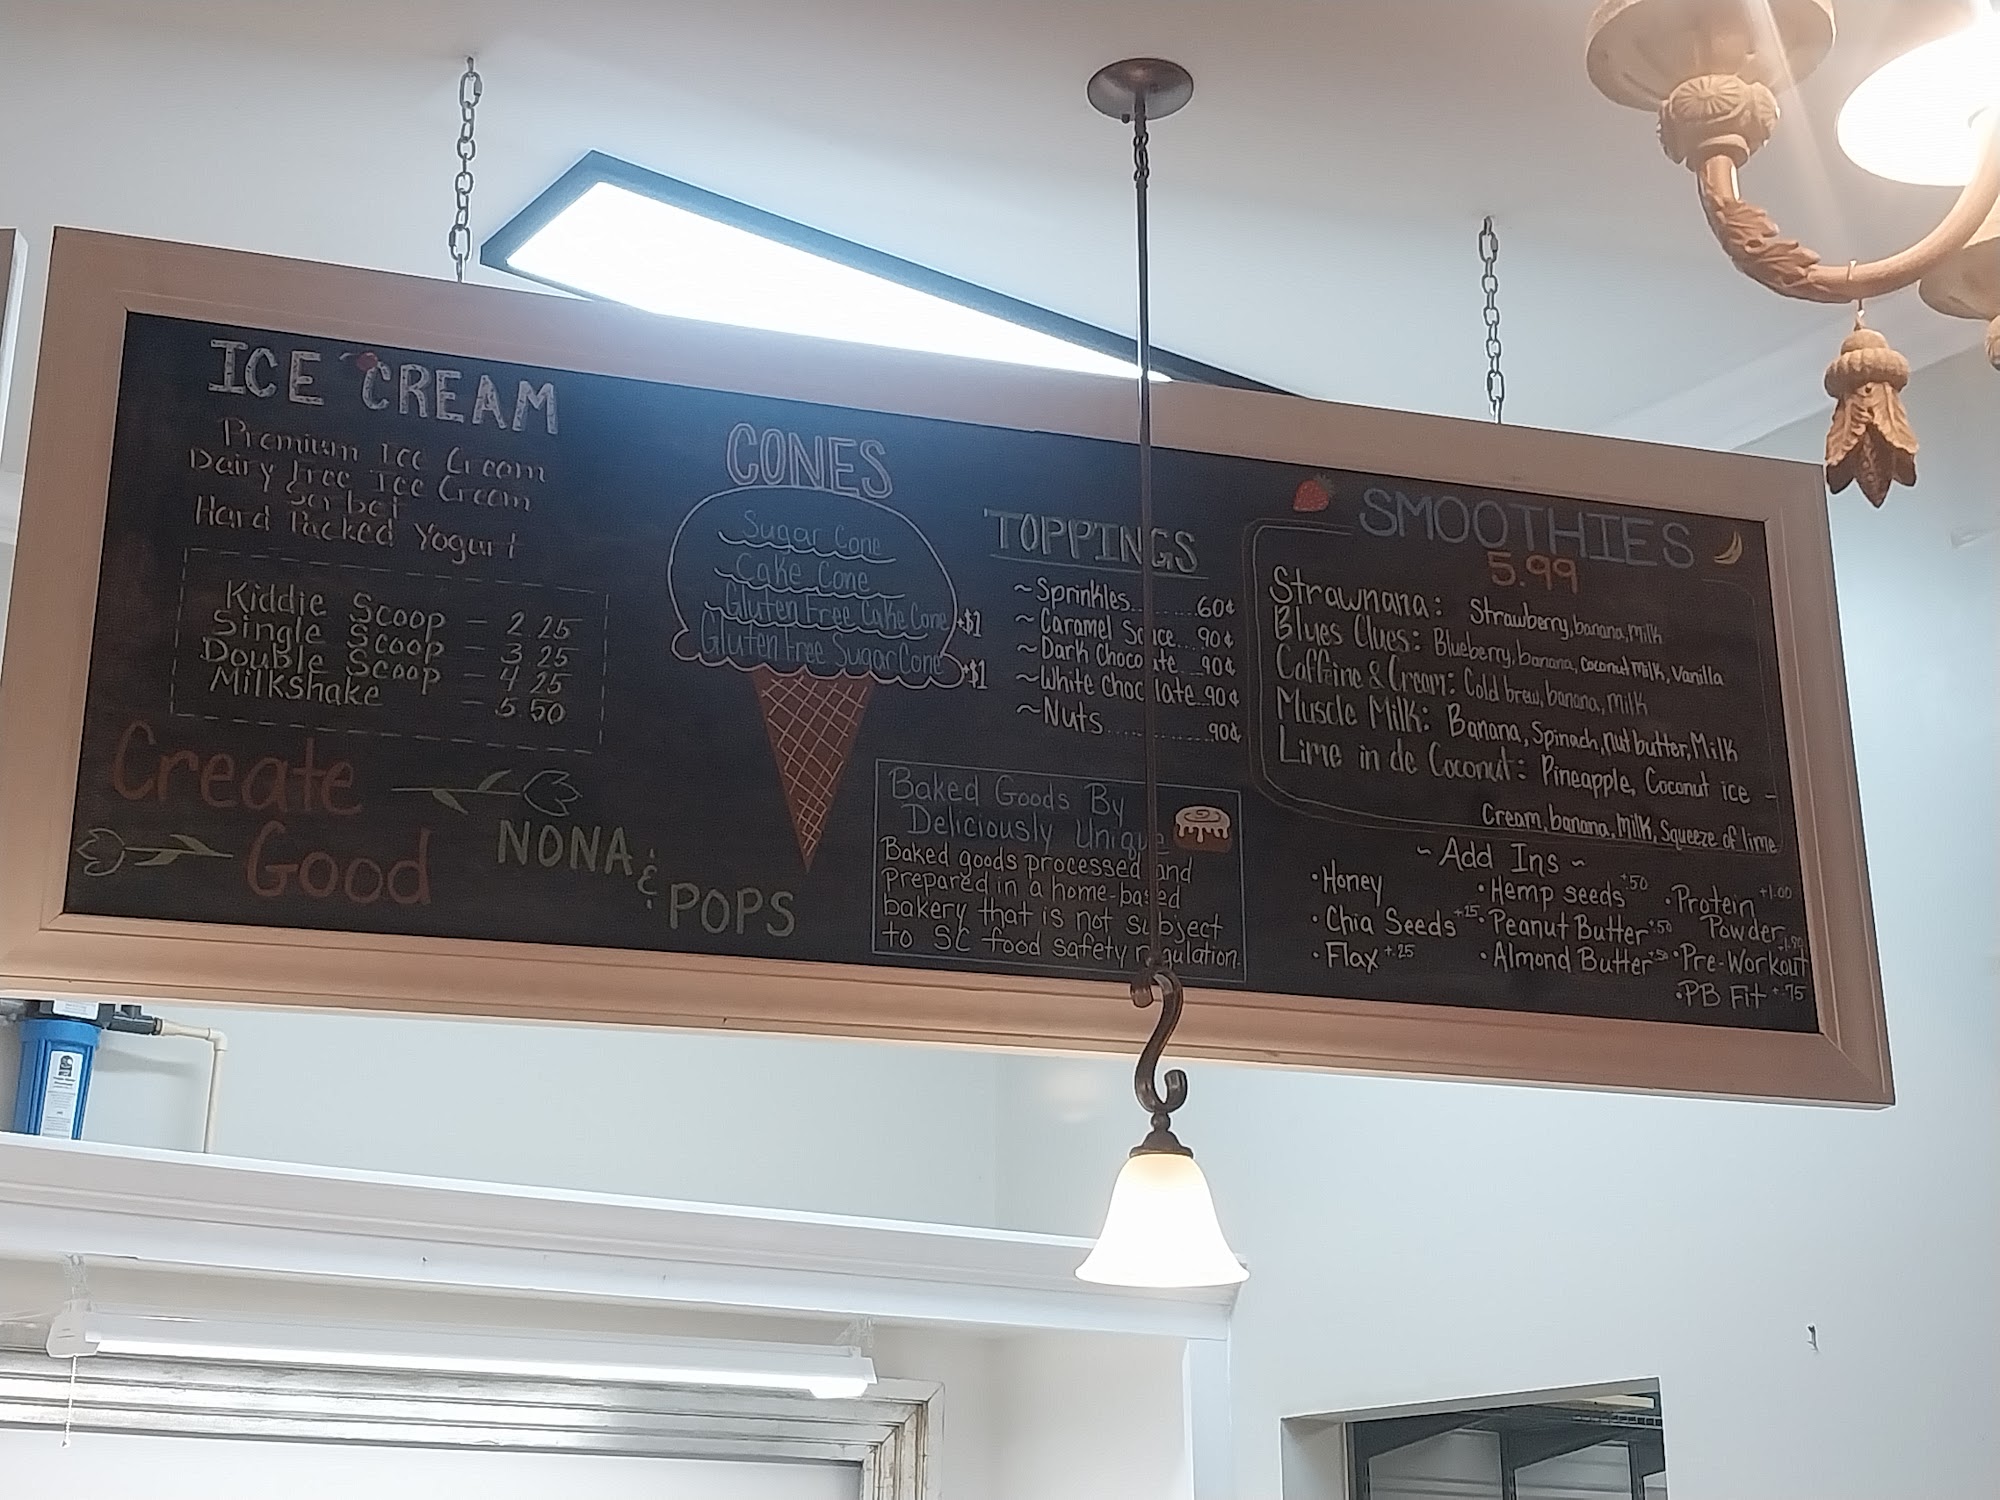 ICE CREAM
Premium Ice Cream
Dairy Free Ice Cream
Sorbet
Hard Packed Yogurt
Kiddie Scoop - 2.25
Single Scoop - 3.25
Double Scoop - 4.25
Milkshake - 5.50
Create
Good
NONA
&
POPS
CONES
Sugar Cone
Cake Cone
Gluten Free Cake Cone +$1
Gluten Free Sugar Cone +$1
TOPPINGS
~Sprinkles.........60¢
~Caramel Sauce...90¢
~Dark Chocolate...90¢
~White Chocolate..90¢
~Nuts............90¢
Baked Goods By
Deliciously Unique
Baked goods processed and
prepared in a home-based
bakery that is not subject
to SC food safety regulation.
SMOOTHIES
5.99
Strawnana: Strawberry, banana, milk
Blues Clues: Blueberry, banana, coconut milk, Vanilla
Caffeine & Cream: Cold brew, banana, milk
Muscle Milk: Banana, Spinach, nut butter, Milk
Lime in de Coconut: Pineapple, Coconut ice -
Cream, banana, milk, Squeeze of lime
~ Add Ins ~
• Honey
• Chia Seeds +.25
• Flax +.25
• Hemp seeds +.50
• Peanut Butter +.50
• Almond Butter +.50
• Protein +1.00
Powder
• Pre-Workout
• PB Fit +.75